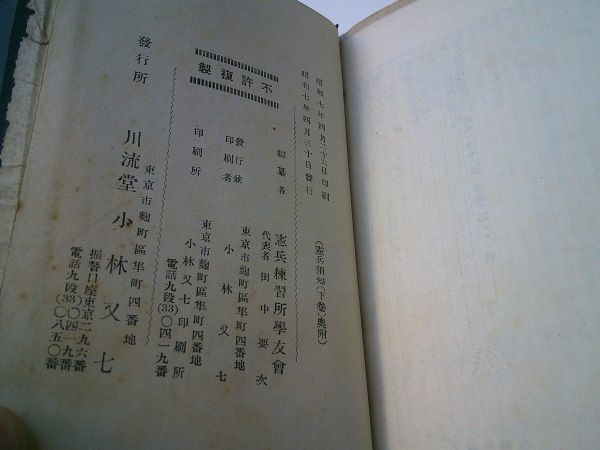 昭和七年四月二十六日印刷
昭和七年四月三十日發行
(憲兵須知(下卷)奥附)
不許複製
編纂者
憲兵練習所學友會
代表者 田中要次
發行兼
印刷者
東京市麴町區隼町四番地
小林又七
印刷所
東京市麴町區隼町四番地
小林又七印刷所
電話九段(33)〇四一九番
發行所
東京市麴町區隼町四番地
川流堂 小林又七
振替口座東京二九六番
電話九段(33)〇四一九番
〇八五〇番